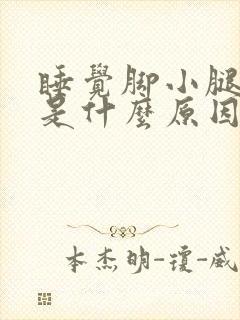 睡覺腳小腿
是什麼原因
本杰明-瓊-威